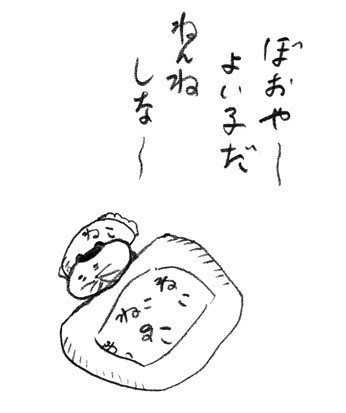 ぼおや〜
よい子だ
ねんね
しな〜
ねこ
ねこ
ねこ